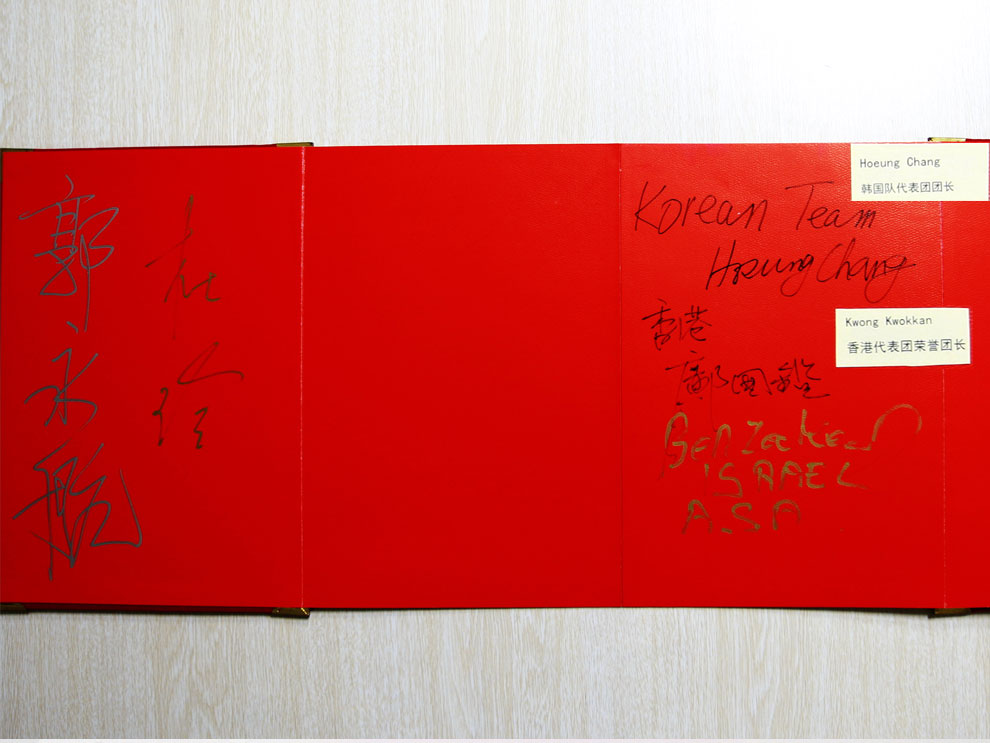 郭永航
Hoeung Chang
韩国队代表团团长
Korean Team
Hoeung Chang
Kwong Kwokkan
香港代表团荣誉团长
香港
鄺國
ISRAEL
ASA